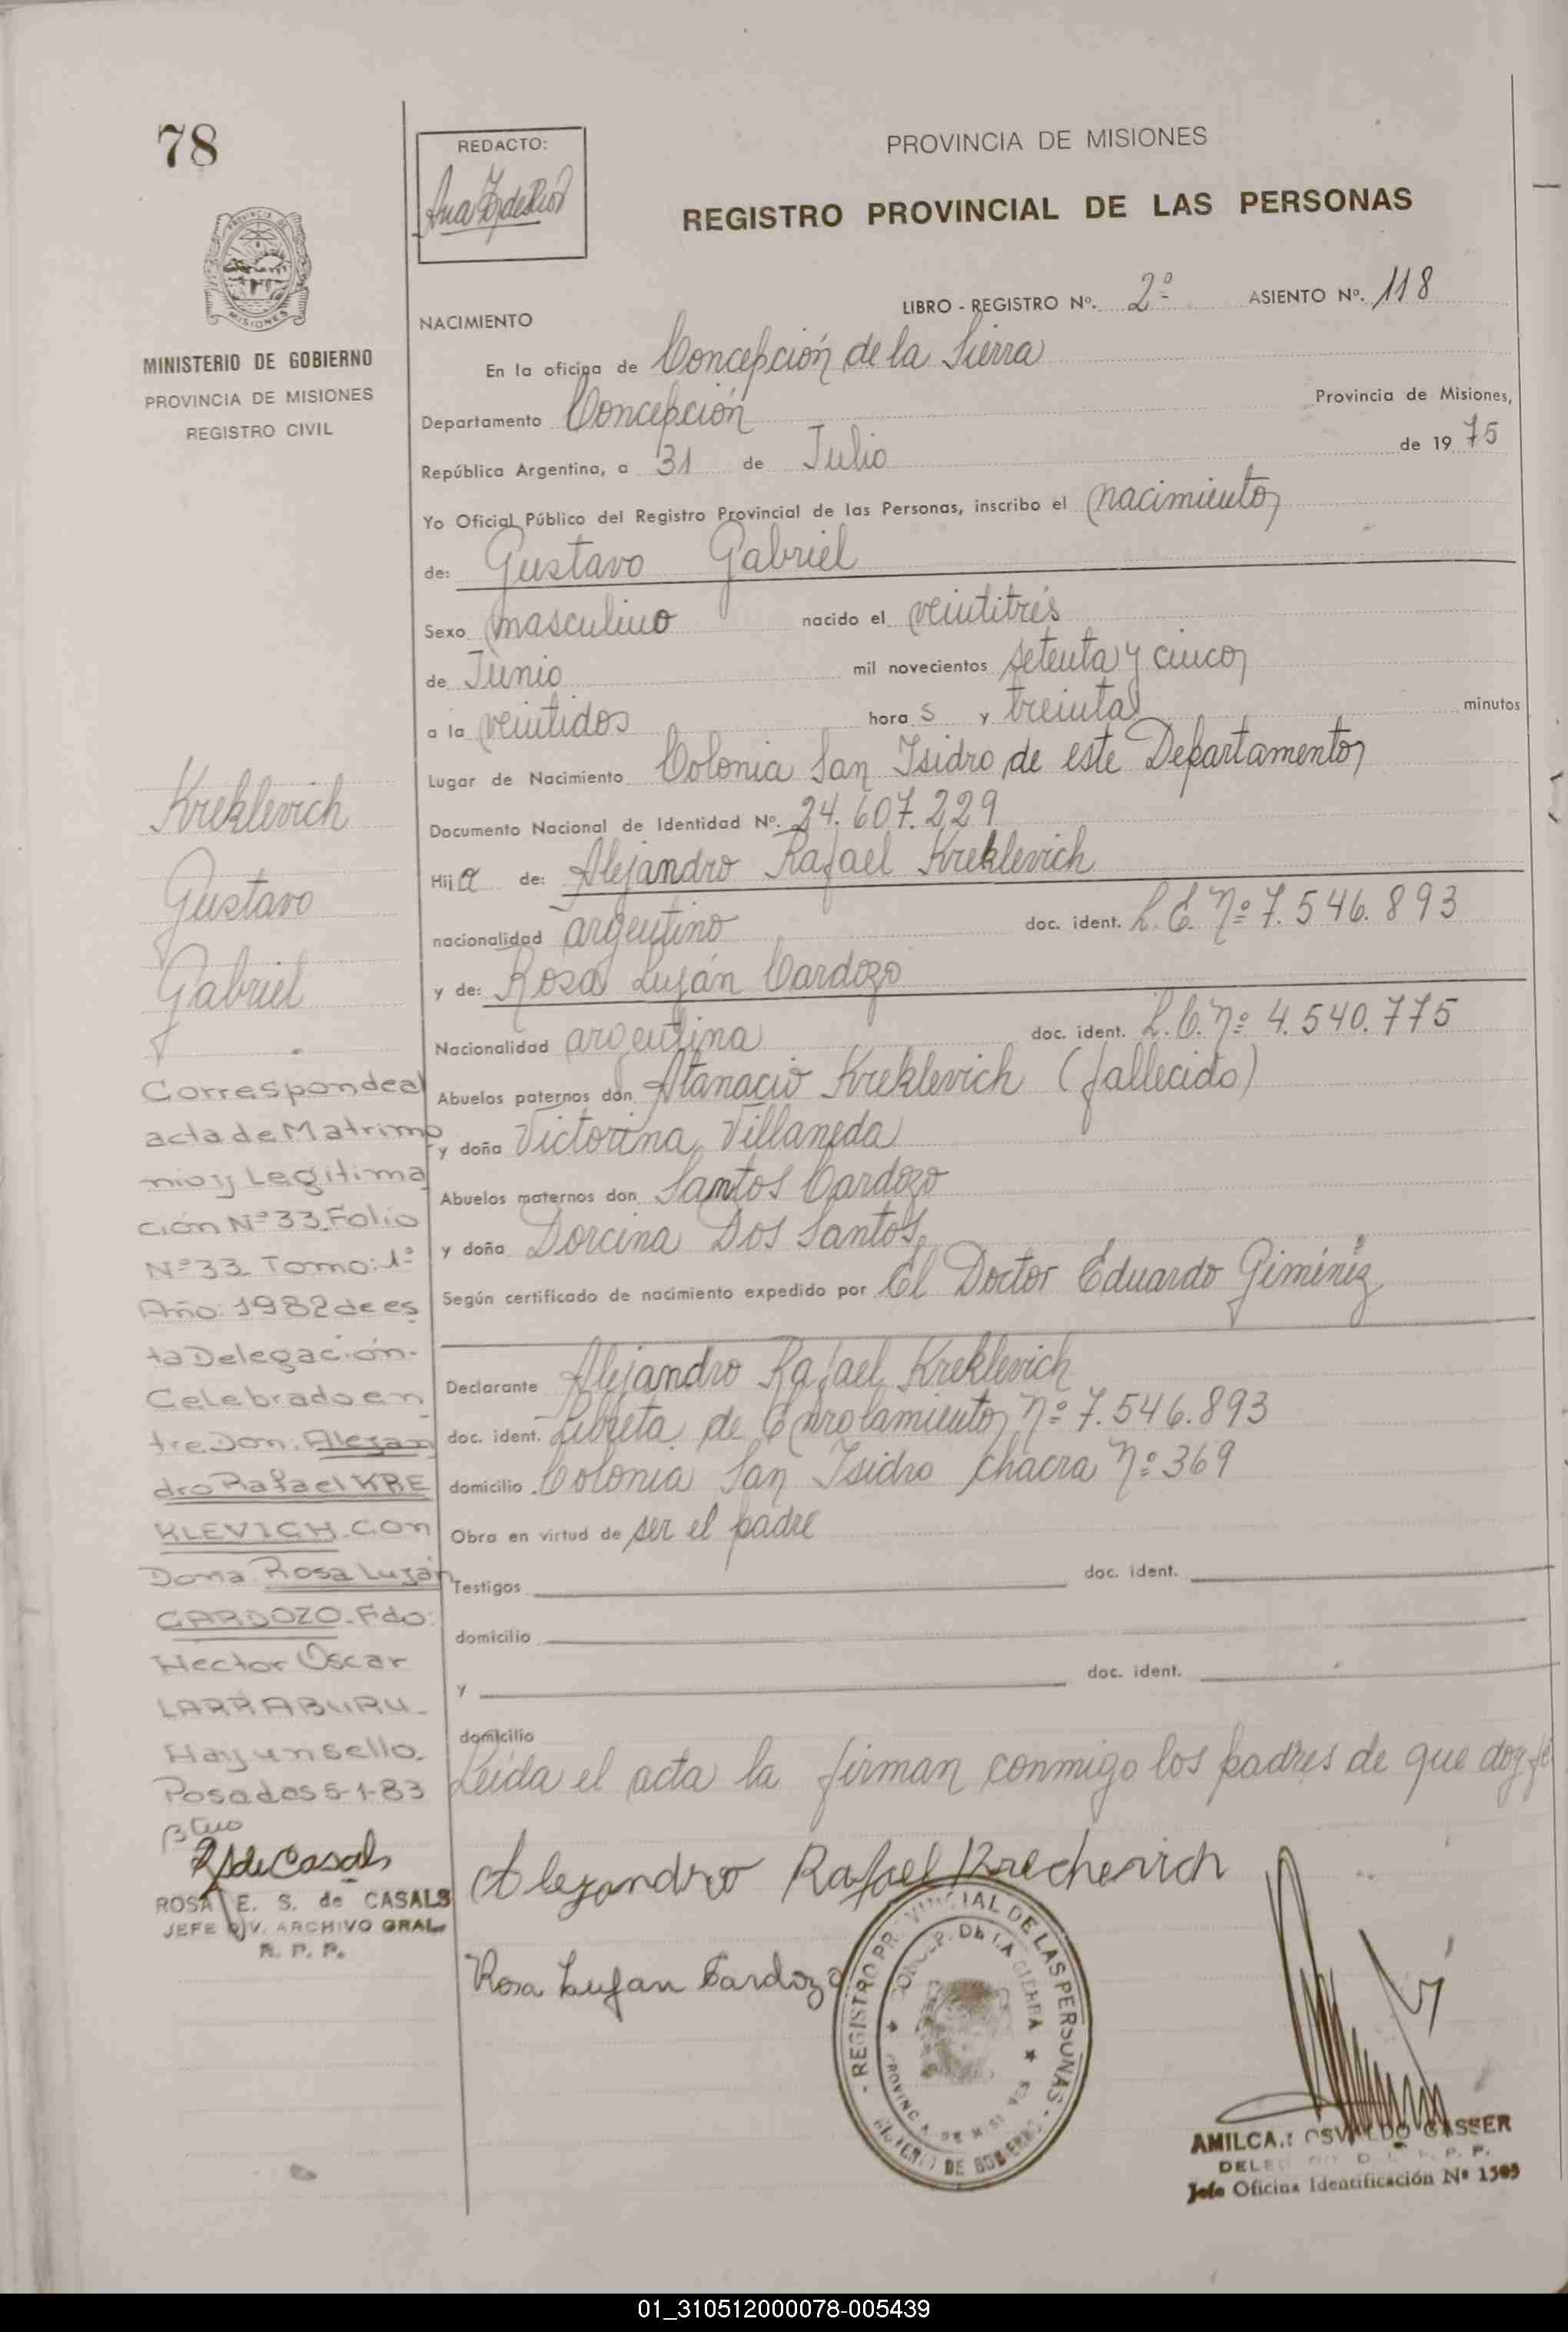 78
REDACTO:
PROVINCIA DE MISIONES
REGISTRO PROVINCIAL DE LAS PERSONAS
LIBRO - REGISTRO Nº. 2º ASIENTO Nº. 118
MISIONES
MINISTERIO DE GOBIERNO
PROVINCIA DE MISIONES
REGISTRO CIVIL
NACIMIENTO
En la oficina de Concepción de la Sierra
Departamento Concepción Provincia de Misiones,
República Argentina, a 31 de Julio de 19 75
Yo Oficial Público del Registro Provincial de las Personas, inscribo el nacimiento
de: Gustavo Gabriel
Sexo masculino nacido el veintitrés
de Junio mil novecientos setenta y cinco
a la veintidos hora s y treinta minutos
Lugar de Nacimiento Colonia San Isidro de este Departamento
Documento Nacional de Identidad Nº. 24.607.229
Hij o de: Alejandro Rafael Kreklevich
nacionalidad argentino doc. ident. L.E. Nº 7.546.893
y de: Rosa Luján Cardozo
Nacionalidad argentina doc. ident. L.C. Nº 4.540.775
Abuelos paternos don Atanacio Kreklevich (fallecido)
y doña Victorina Villaneda
Abuelos maternos don Santos Cardozo
y doña Dorcina Dos Santos
Según certificado de nacimiento expedido por El Doctor Eduardo Giménez
Declarante Alejandro Rafael Kreklevich
doc. ident. Libreta de Enrolamiento Nº 7.546.893
domicilio Colonia San Isidro chacra Nº 369
Obra en virtud de ser el padre
Testigos doc. ident.
domicilio
y doc. ident.
domicilio
Leída el acta la firman conmigo los padres de que doy fé
Alejandro Rafael Krechevich
Rosa Lujan Cardozo
REGISTRO PROVINCIAL DE LAS PERSONAS
CONCEP. DE LA SIERRA
PROVINCIA DE MISIONES
MINISTERIO DE GOBIERNO
AMILCAR OSVALDO GASSER
Jefe Oficina Identificación Nº 1505
Kreklevich
Gustavo
Gabriel
Corresponde al
acta de Matrimo
nio y Legitima
ción Nº 33 Folio
Nº 33 Tomo: 1º
Año: 1982 de es
ta Delegación.-
Celebrado en
tre Don: Alejan
dro Rafael KRE
KLEVICH con
Doña Rosa Luján
CARDOZO. Fdo:
Hector Oscar
LARRABURU.
Hay un sello.
Posadas 5-1-83
R S de Casals
ROSA E. S. de CASALS
JEFE DIV. ARCHIVO GRAL.
R. P. P.
01_310512000078-005439